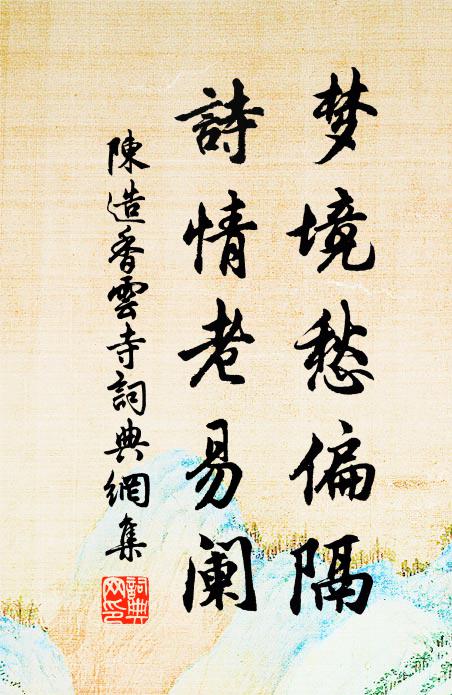 梦境愁偏隔
詩情老易阑
陳造香雲寺詞典網集
詞典网印